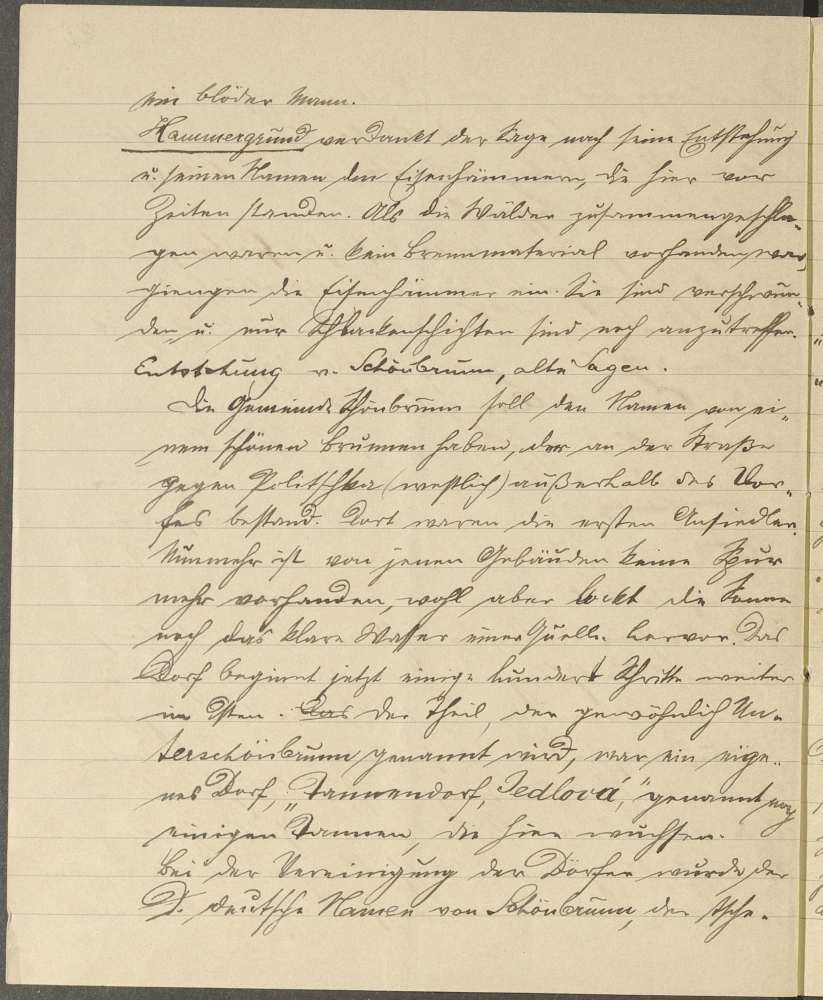 ein blöder Mann.
Hammergrund verdankt der Sage nach seine Entstehung
u. seinen Namen den Eisenhämmern, die hier vor
Zeiten standen. Als die Wälder zusammengeschla-
gen waren u. kein Brennmaterial vorhanden war,
giengen die Eisenhämmer ein. Sie sind verschwun-
den u. nur Schlackenschichten sind noch anzutreffen.
Entstehung v. Schönbrunn, alte Sagen.
Die Gemeinde Schönbrunn soll den Namen von ei-
nem schönen Brunnen haben, der an der Straße
gegen Politschka (westlich) außerhalb des Dor-
fes bestand. Dort waren die ersten Ansiedler.
Nunmehr ist von jenen Gebäuden keine Spur
mehr vorhanden, wohl aber lockt die Sonne
noch das klare Wasser einer Quelle hervor. Das
Dorf beginnt jetzt einige hundert Schritte weiter
im Osten. Das Der Theil, der gewöhnlich Un-
terschönbrunn genannt wird, war ein eige-
nes Dorf, "Tannendorf, Jedlová," genannt nach
einigen Tannen, die hier wuchsen.
Bei der Vereinigung der Dörfer wurde der
D. deutsche Namen von Schönbrunn, der tsche-